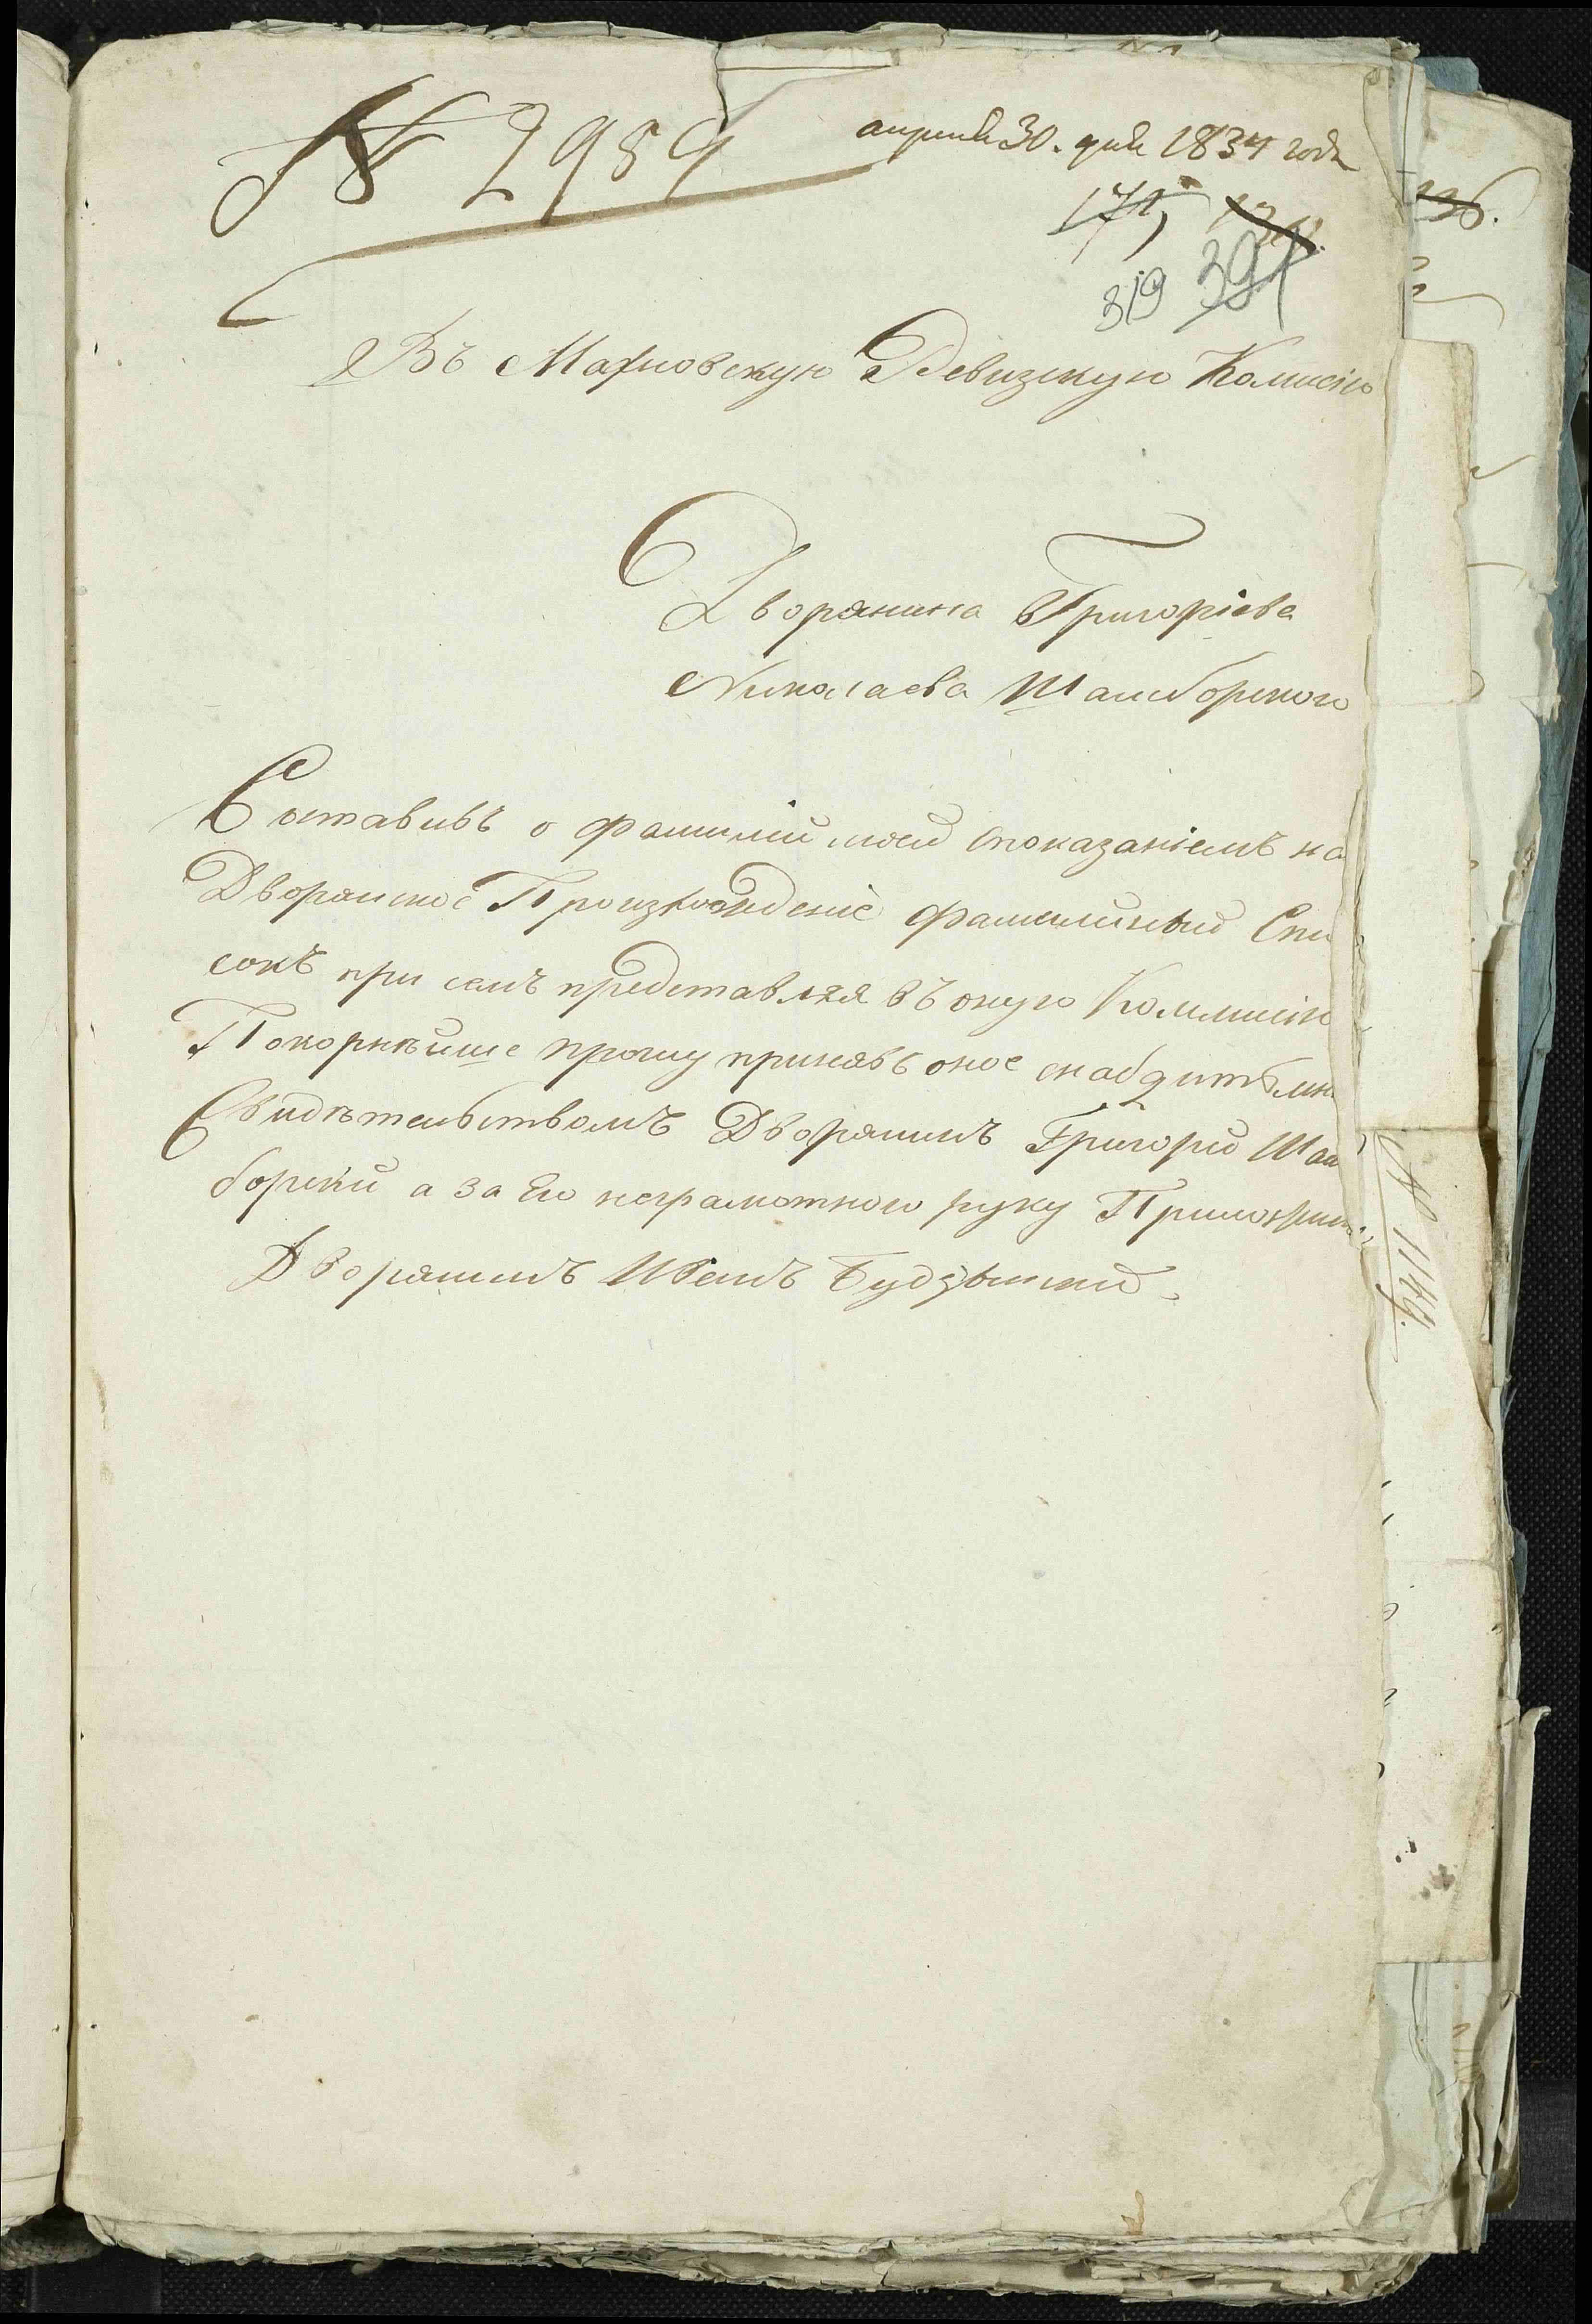 № 2989
апреля 30. дня 1834 года
175
319 391
Въ Махновскую Ревизскую Комисію
Дворянина Григоріева
Николаева Шамборского
Составивъ о фамиліи моей споказаніемъ на
Дворянское Произхождение фамилийный Спи
сокъ при семъ представляя въ оную Коммисію
Покорнѣише прошу принявъ оное снабдить мнѣ
Свидѣтельствомъ Дворянинъ Григорий Шам
борский а за Его неграмотного руку Приложилъ
Дворянинъ Иванъ Будзынский
136.
№ 1149.